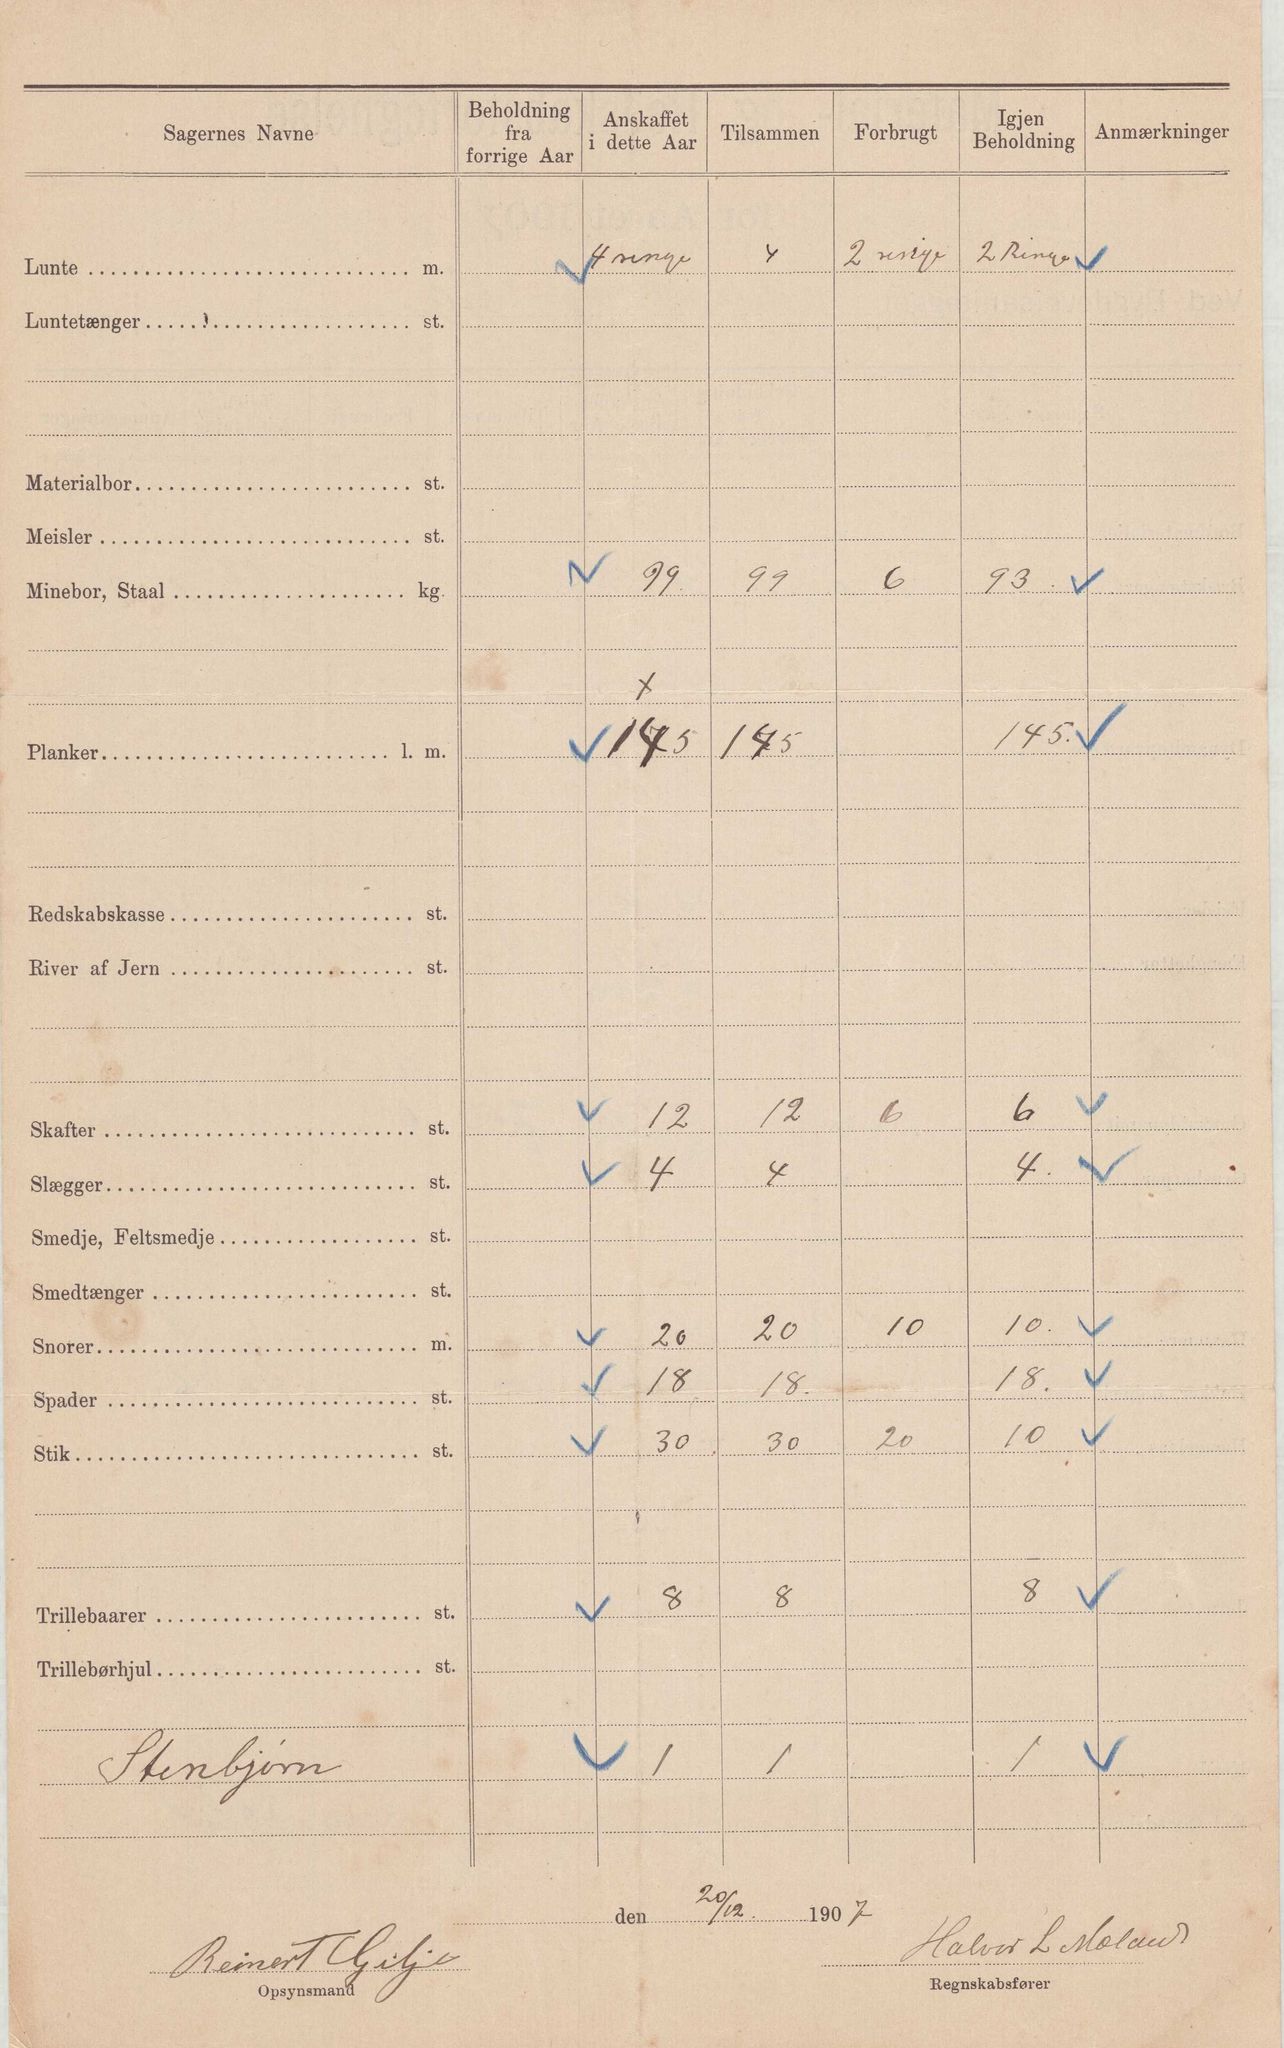 Sagernes Navne Beholdning fra forrige Aar Anskaffet i dette Aar Tilsammen Forbrugt Igjen Beholdning Anmærkninger
Lunte m. 4 ringe 4 2 ringe 2 Ringe
Luntetænger st.
Materialbor st.
Meisler st.
Minebor, Staal kg. 99 99 6 93
x
Planker l. m. 145 145 145.
Redskabskasse st.
River af Jern st.
Skafter st. 12 12 6 6
Slægger st. 4 4 4.
Smedje, Feltsmedje st.
Smedtænger st.
Snorer m. 20 20 10 10.
Spader st. 18 18. 18.
Stik st. 30 30 20 10
Trillebaarer st. 8 8 8
Trillebørhjul st.
Stenbjørn 1 1 1
den 20/12. 1907
Reinert Gilje Halvor L Mæland
Opsynsmand Regnskabsfører